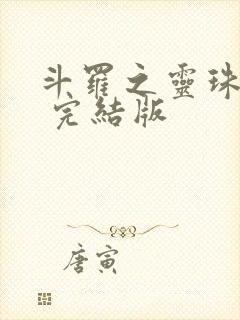 斗羅之靈珠
完結版
唐寅